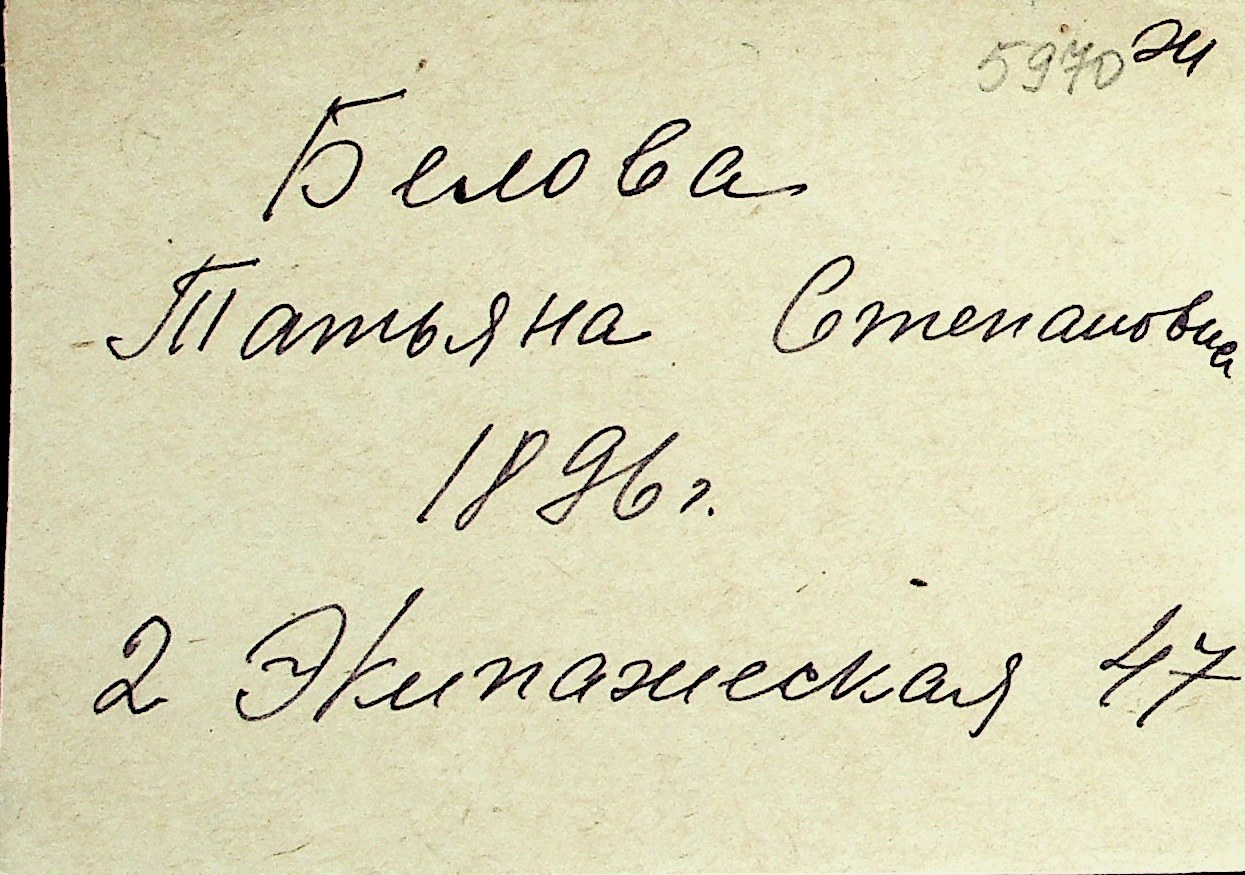 5970 ж
Белова
Татьяна Степановна
1896 г.
2 Экипажеская 47